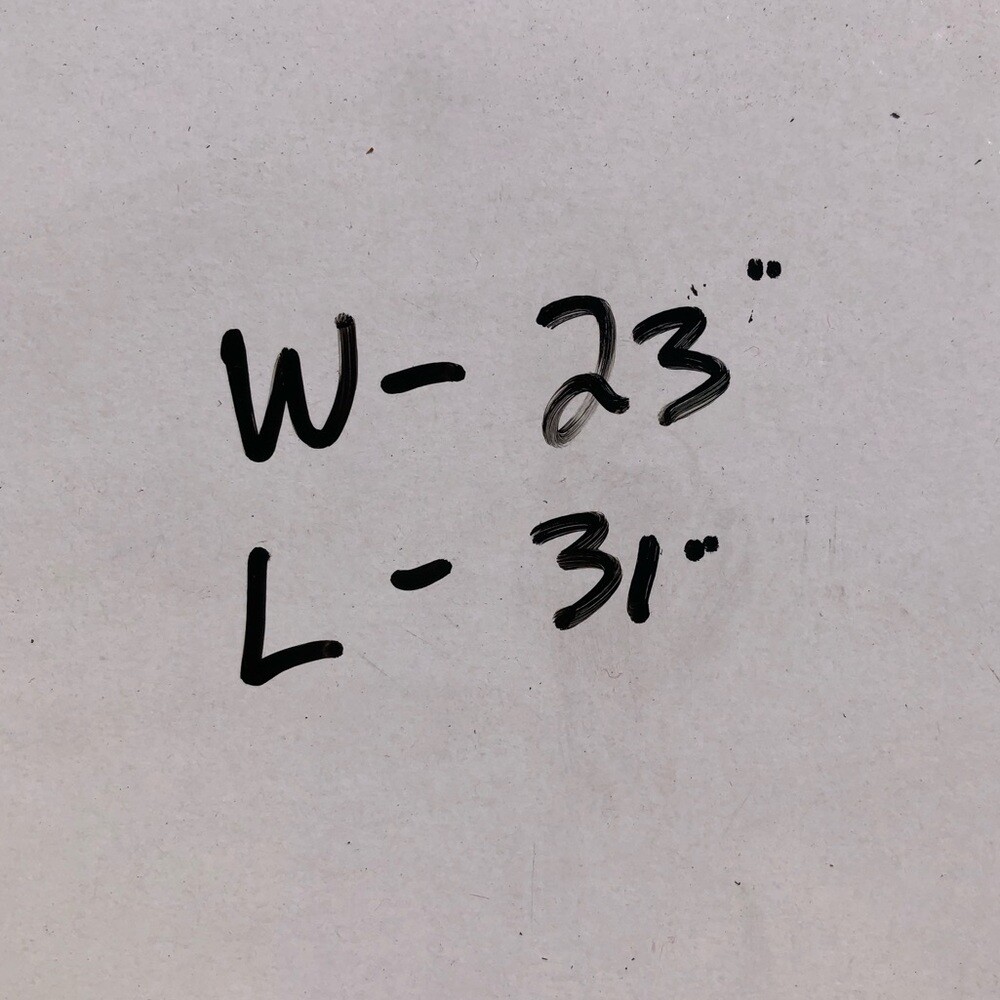 W- 23"
L - 31"